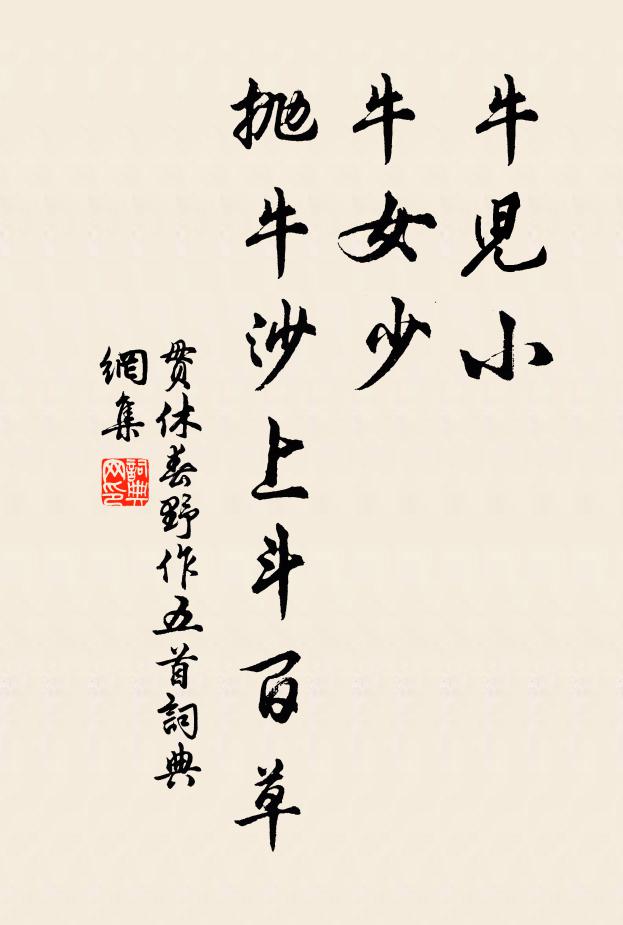 牛児小
牛女少
抛牛沙上斗百草
贯休春野作五首詞典
網集
詞典
网印